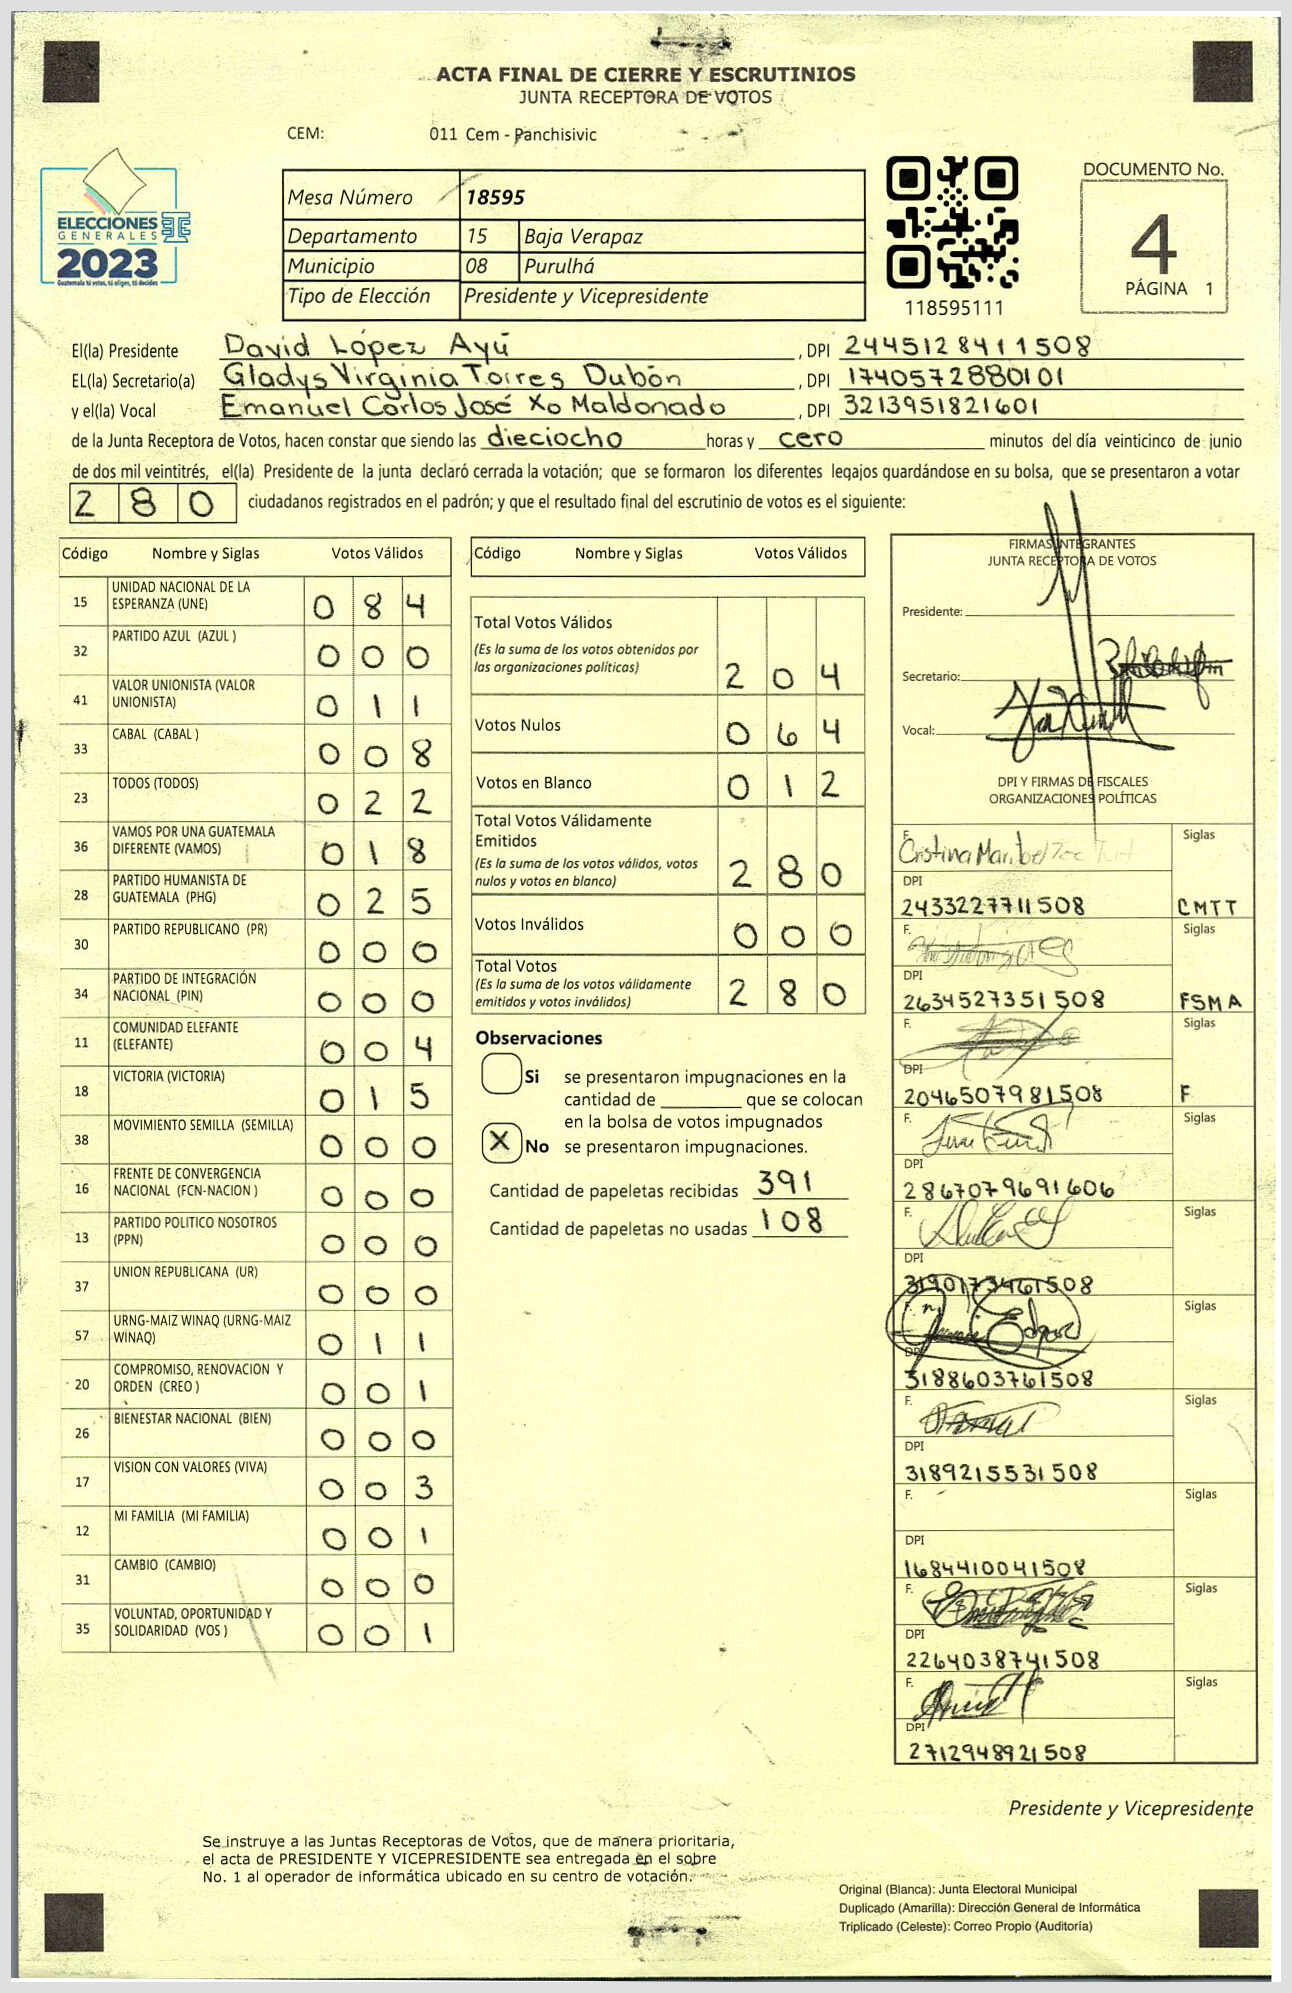 ACTA FINAL DE CIERRE Y ESCRUTINIOS
JUNTA RECEPTORA DE VOTOS
CEM: 011 Cem - Panchisivic
ELECCIONES
GENERALES
2023
Guatemala tú votas, tú eliges, tú decides
Mesa Número 18595
Departamento 15 Baja Verapaz
Municipio 08 Purulhá
Tipo de Elección Presidente y Vicepresidente
118595111
DOCUMENTO No.
4
PÁGINA 1
El(la) Presidente David López Ayú , DPI 2445128411508
EL(la) Secretario(a) Gladys Virginia Torres Dubón , DPI 1740572880101
y el(la) Vocal Emanuel Carlos José Xo Maldonado , DPI 3213951821601
de la Junta Receptora de Votos, hacen constar que siendo las dieciocho horas y cero minutos del día veinticinco de junio
de dos mil veintitrés, el(la) Presidente de la junta declaró cerrada la votación; que se formaron los diferentes legajos guardándose en su bolsa, que se presentaron a votar
280 ciudadanos registrados en el padrón; y que el resultado final del escrutinio de votos es el siguiente:
Código Nombre y Siglas Votos Válidos
15 UNIDAD NACIONAL DE LA ESPERANZA (UNE) 084
32 PARTIDO AZUL (AZUL ) 000
41 VALOR UNIONISTA (VALOR UNIONISTA) 011
33 CABAL (CABAL ) 008
23 TODOS (TODOS) 022
36 VAMOS POR UNA GUATEMALA DIFERENTE (VAMOS) 018
28 PARTIDO HUMANISTA DE GUATEMALA (PHG) 025
30 PARTIDO REPUBLICANO (PR) 000
34 PARTIDO DE INTEGRACIÓN NACIONAL (PIN) 000
11 COMUNIDAD ELEFANTE (ELEFANTE) 004
18 VICTORIA (VICTORIA) 015
38 MOVIMIENTO SEMILLA (SEMILLA) 000
16 FRENTE DE CONVERGENCIA NACIONAL (FCN-NACION ) 000
13 PARTIDO POLITICO NOSOTROS (PPN) 000
37 UNION REPUBLICANA (UR) 000
57 URNG-MAIZ WINAQ (URNG-MAIZ WINAQ) 011
20 COMPROMISO, RENOVACION Y ORDEN (CREO ) 001
26 BIENESTAR NACIONAL (BIEN) 000
17 VISION CON VALORES (VIVA) 003
12 MI FAMILIA (MI FAMILIA) 001
31 CAMBIO (CAMBIO) 000
35 VOLUNTAD, OPORTUNIDAD Y SOLIDARIDAD (VOS ) 001
Código Nombre y Siglas Votos Válidos
Total Votos Válidos
(Es la suma de los votos obtenidos por
las organizaciones políticas) 204
Votos Nulos 064
Votos en Blanco 012
Total Votos Válidamente
Emitidos
(Es la suma de los votos válidos, votos
nulos y votos en blanco) 280
Votos Inválidos 000
Total Votos
(Es la suma de los votos válidamente
emitidos y votos inválidos) 280
Observaciones
Si se presentaron impugnaciones en la
cantidad de ________ que se colocan
en la bolsa de votos impugnados
X No se presentaron impugnaciones.
Cantidad de papeletas recibidas 391
Cantidad de papeletas no usadas 108
FIRMAS INTEGRANTES
JUNTA RECEPTORA DE VOTOS
Presidente:
Secretario:
Vocal:
DPI Y FIRMAS DE FISCALES
ORGANIZACIONES POLÍTICAS
F. Cristina Maribel Siglas
DPI
2433227711508 CMTT
F. Siglas
DPI
2634527351508 FSMA
F. Siglas
DPI
2046507981508 F
F. Siglas
DPI
2867079691606
F. Siglas
DPI
3190173461508
F. Edgar Siglas
DPI
3188603761508
F. Siglas
DPI
3189215531508
F. Siglas
DPI
1684410041508
F. Siglas
DPI
2264038741508
F. Siglas
DPI
2712948921508
Presidente y Vicepresidente
Se instruye a las Juntas Receptoras de Votos, que de manera prioritaria,
el acta de PRESIDENTE Y VICEPRESIDENTE sea entregada en el sobre
No. 1 al operador de informática ubicado en su centro de votación.
Original (Blanca): Junta Electoral Municipal
Duplicado (Amarilla): Dirección General de Informática
Triplicado (Celeste): Correo Propio (Auditoría)